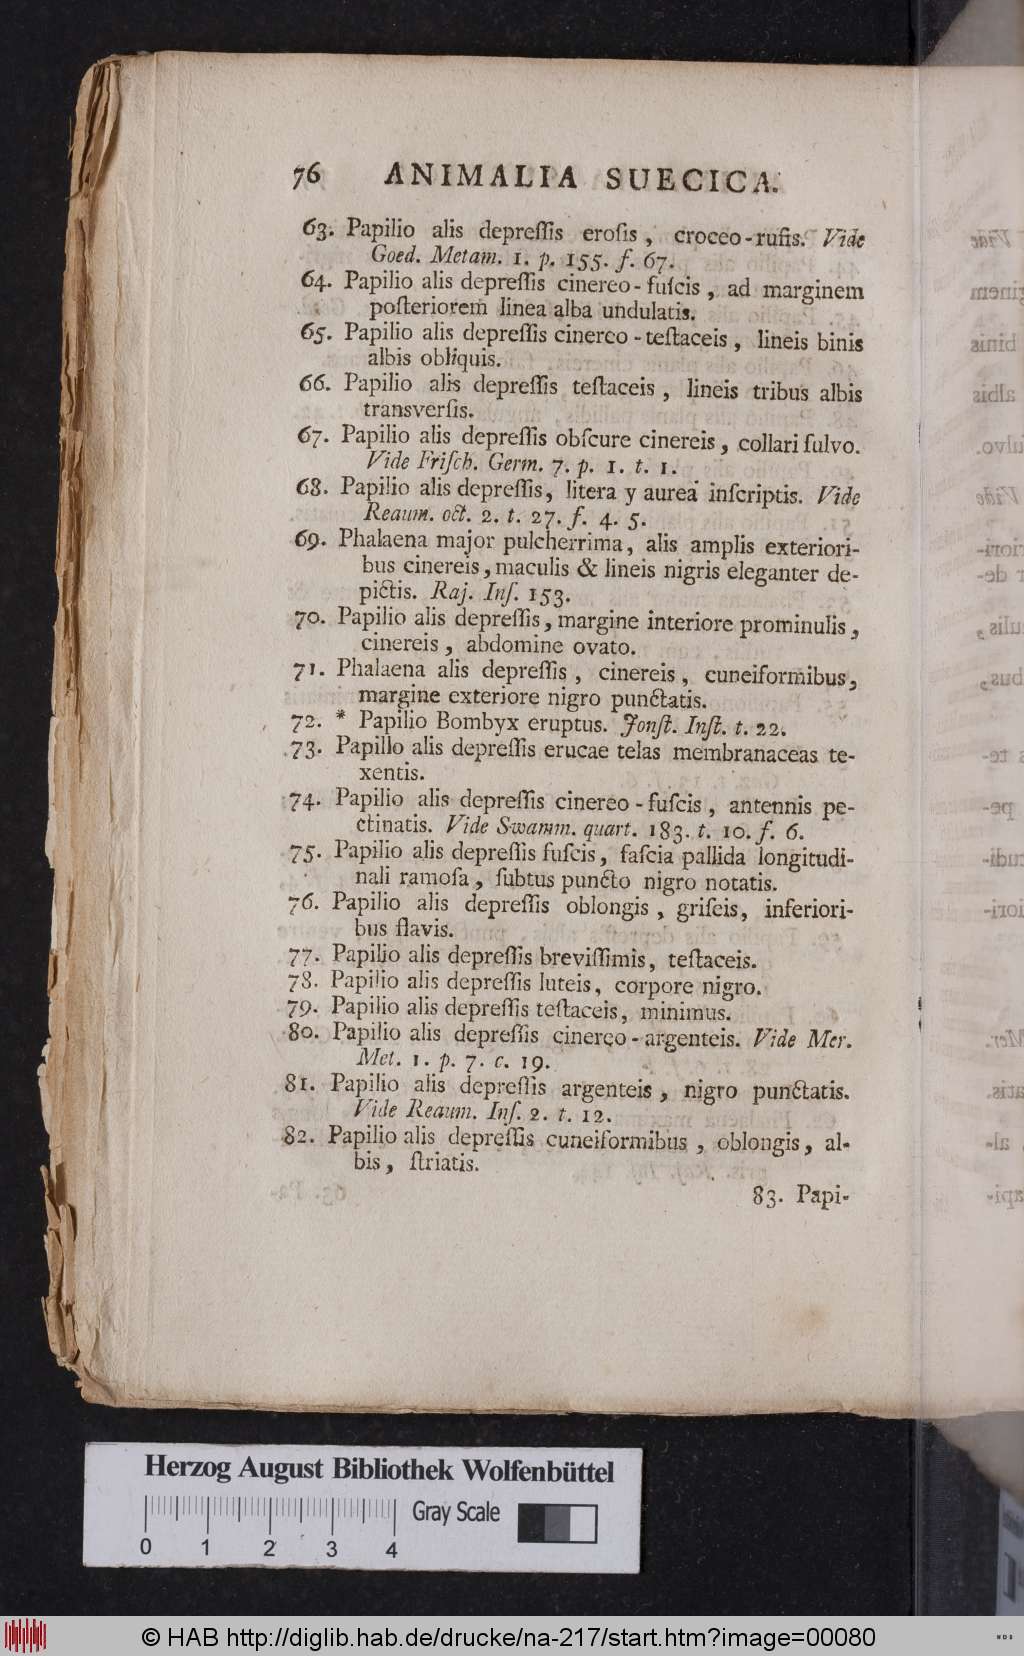 76 ANIMALIA SUECICA.
63. Papilio alis depreſſis eroſis, croceo-rufis. Vide
Goed. Metam. 1. p. 155. f. 67.
64. Papilio alis depreſſis cinereo-fuſcis, ad marginem
poſteriorem linea alba undulatis.
65. Papilio alis depreſſis cinereo-teſtaceis, lineis binis
albis obliquis.
66. Papilio alis depreſſis teſtaceis, lineis tribus albis
transverſis.
67. Papilio alis depreſſis obſcure cinereis, collari fulvo.
Vide Friſch. Germ. 7. p. 1. t. 1.
68. Papilio alis depreſſis, litera y aurea inſcriptis. Vide
Reaum. oct. 2. t. 27. f. 4. 5.
69. Phalaena major pulcherrima, alis amplis exteriori-
bus cinereis, maculis & lineis nigris eleganter de-
pictis. Raj. Inſ. 153.
70. Papilio alis depreſſis, margine interiore prominulis,
cinereis, abdomine ovato.
71. Phalaena alis depreſſis, cinereis, cuneiformibus,
margine exteriore nigro punctatis.
72. * Papilio Bombyx eruptus. Jonſt. Inſt. t. 22.
73. Papilio alis depreſſis erucae telas membranaceas te-
xentis.
74. Papilio alis depreſſis cinereo-fuſcis, antennis pe-
ctinatis. Vide Swamm. quart. 183. t. 10. f. 6.
75. Papilio alis depreſſis fuſcis, faſcia pallida longitudi-
nali ramoſa, ſubtus puncto nigro notatis.
76. Papilio alis depreſſis oblongis, griſeis, inferiori-
bus flavis.
77. Papilio alis depreſſis breviſſimis, teſtaceis.
78. Papilio alis depreſſis luteis, corpore nigro.
79. Papilio alis depreſſis teſtaceis, minimus.
80. Papilio alis depreſſis cinereo-argenteis. Vide Mer.
Met. 1. p. 7. c. 19.
81. Papilio alis depreſſis argenteis, nigro punctatis.
Vide Reaum. Inſ. 2. t. 12.
82. Papilio alis depreſſis cuneiformibus, oblongis, al-
bis, ſtriatis.
83. Papi-
Herzog August Bibliothek Wolfenbüttel
Gray Scale
0 1 2 3 4
© HAB http://diglib.hab.de/drucke/na-217/start.htm?image=00080